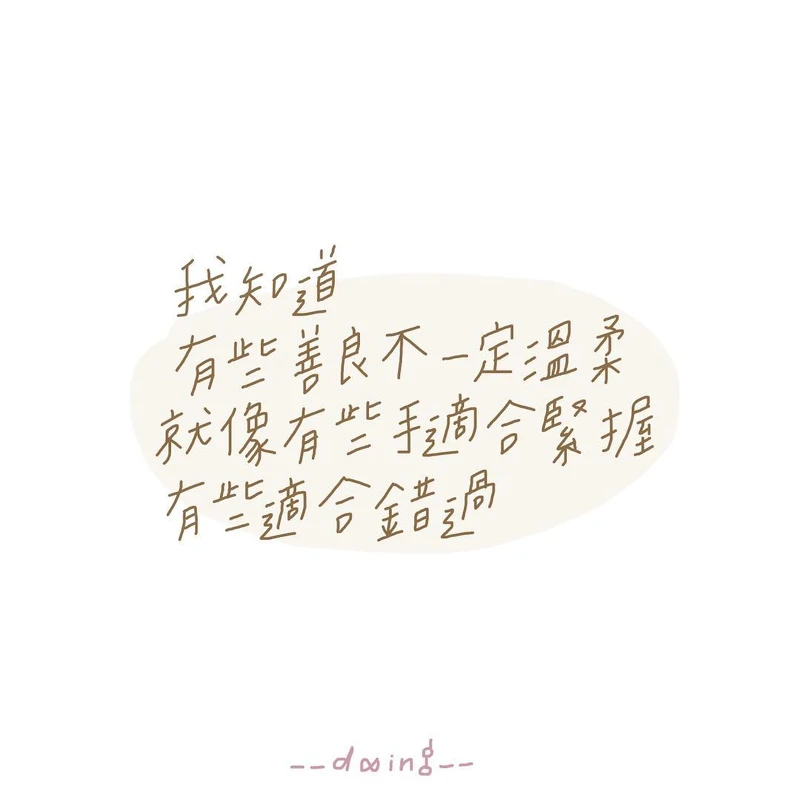 我知道
有些善良不一定溫柔
就像有些手適合緊握
有些適合錯過
--doing--